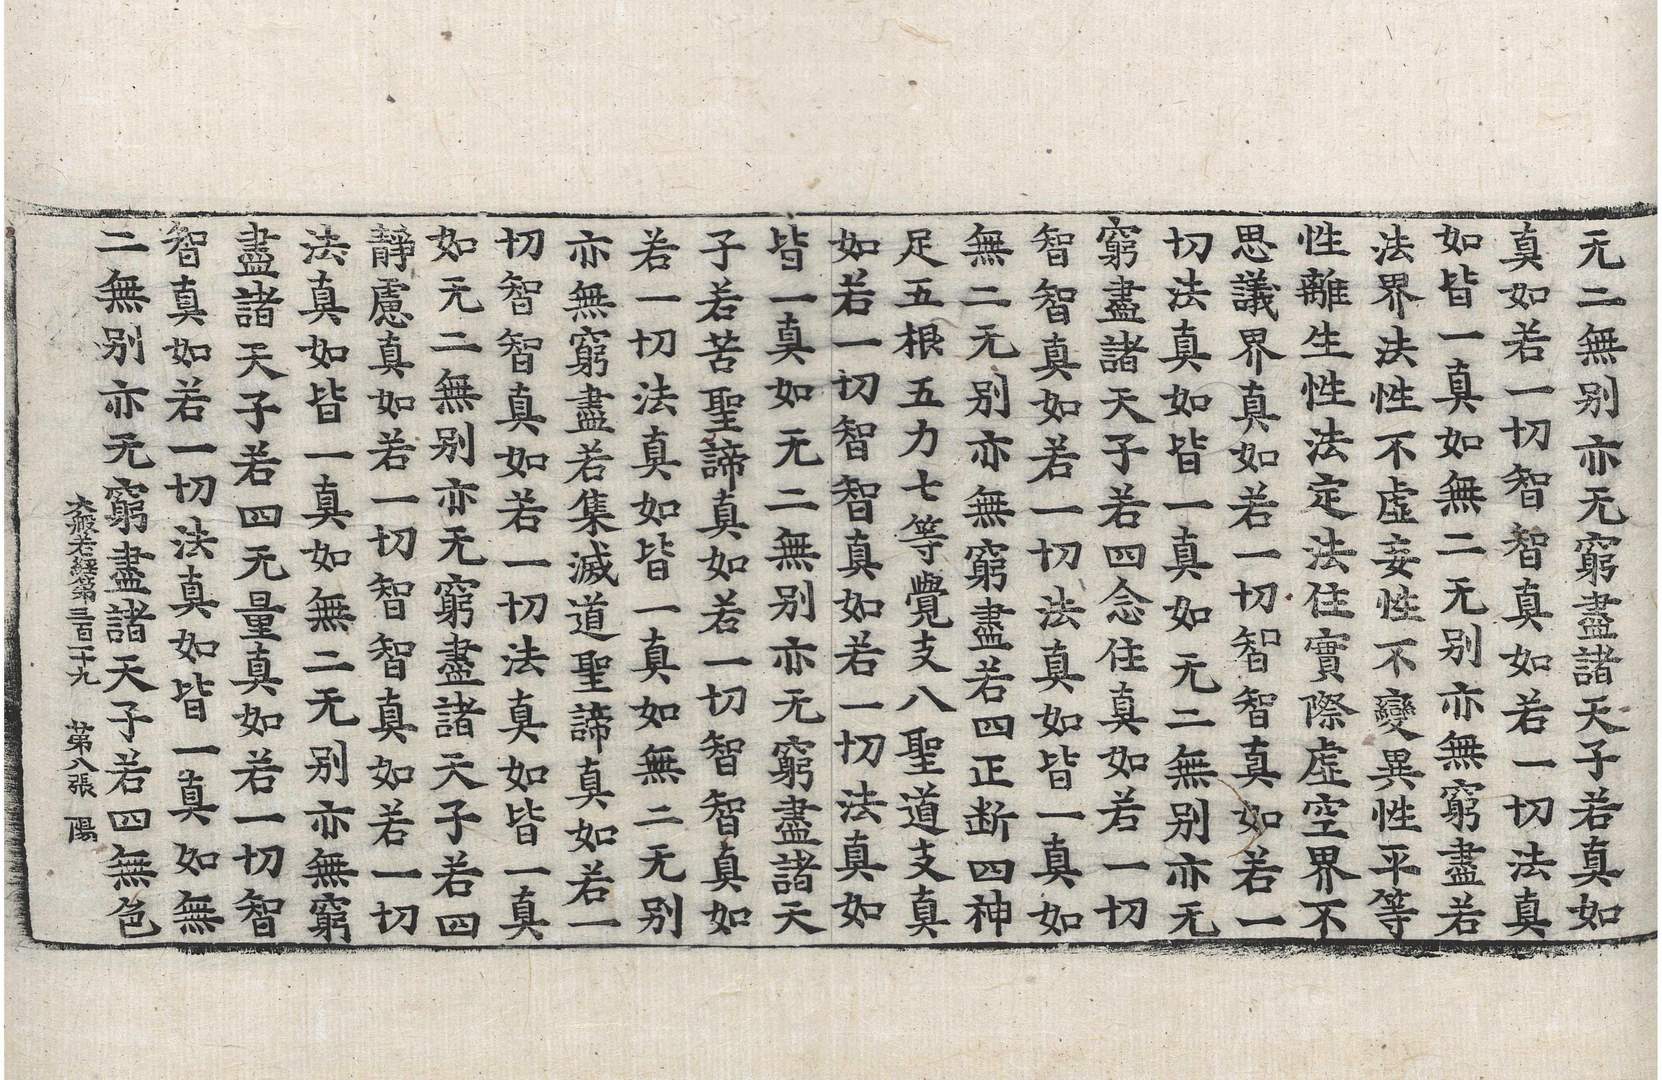 无二無别亦无窮盡諸天子若真如
真如若一切智智真如若一切法真
如皆一真如無二无别亦無窮盡若
法界法性不虚妄性不變異性平等
性離生性法定法住實際虚空界不
思議界真如若一切智智真如若一
切法真如皆一真如无二無别亦无
窮盡諸天子若四念住真如若一切
智智真如若一切法真如皆一真如
無二无别亦無窮盡若四正断四神
足五根五力七等覺支八聖道支真
如若一切智智真如若一切法真如
皆一真如无二無别亦无窮盡諸天
子若苦聖諦真如若一切智智真如
若一切法真如皆一真如無二无别
亦無窮盡若集滅道聖諦真如若一
切智智真如若一切法真如皆一真
如无二無别亦无窮盡諸天子若四
靜慮真如若一切智智真如若一切
法真如皆一真如無二无别亦無窮
盡諸天子若四无量真如若一切智
智真如若一切法真如皆一真如無
二無别亦无窮盡諸天子若四無色
大般若經第三百一十九 第八張 陽